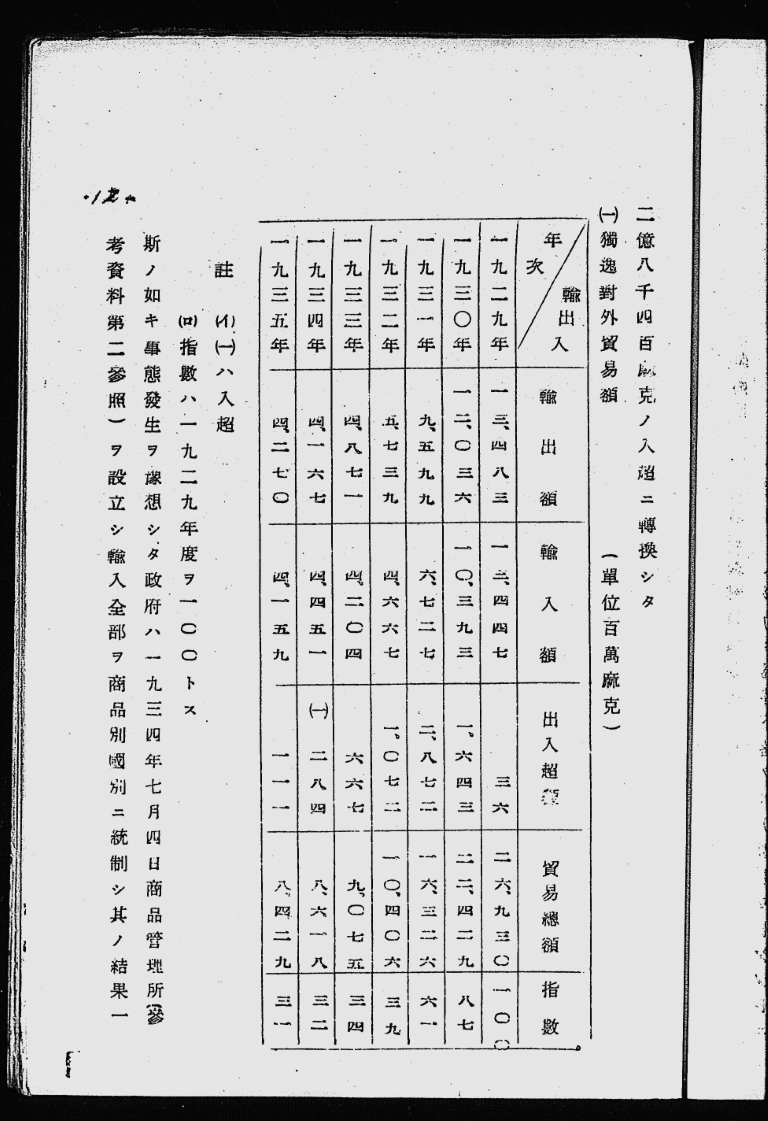 二億八千四百麻克ノ入超ニ轉換シタ
㈠獨逸對外貿易額 (單位百萬麻克)
年次 輸出入 輸出額 輸入額 出入超額 貿易總額 指數
一九二九年 一三、四八三 一三、四四七 三六 二六、九三〇 一〇〇
一九三〇年 一二、〇三六 一〇、三九三 一、六四三 二二、四二九 八七
一九三一年 九、五九九 六、七二七 二、八七二 一六、三二六 六一
一九三二年 五、七三九 四、六六七 一、〇七二 一〇、四〇六 三九
一九三三年 四、八七一 四、二〇四 六六七 九、〇七五 三四
一九三四年 四、一六七 四、四五一 ㈠二八四 八、六一八 三二
一九三五年 四、二七〇 四、一五九 一一一 八、四二九 三一
註 (イ)㈠ハ入超
(ロ)指數ハ一九二九年度ヲ一〇〇トス
斯ノ如キ事態發生ヲ豫想シタ政府ハ一九三四年七月四日商品管理所(參
考資料第二參照)ヲ設立シ輸入全部ヲ商品別國別ニ統制シ其ノ結果一
12